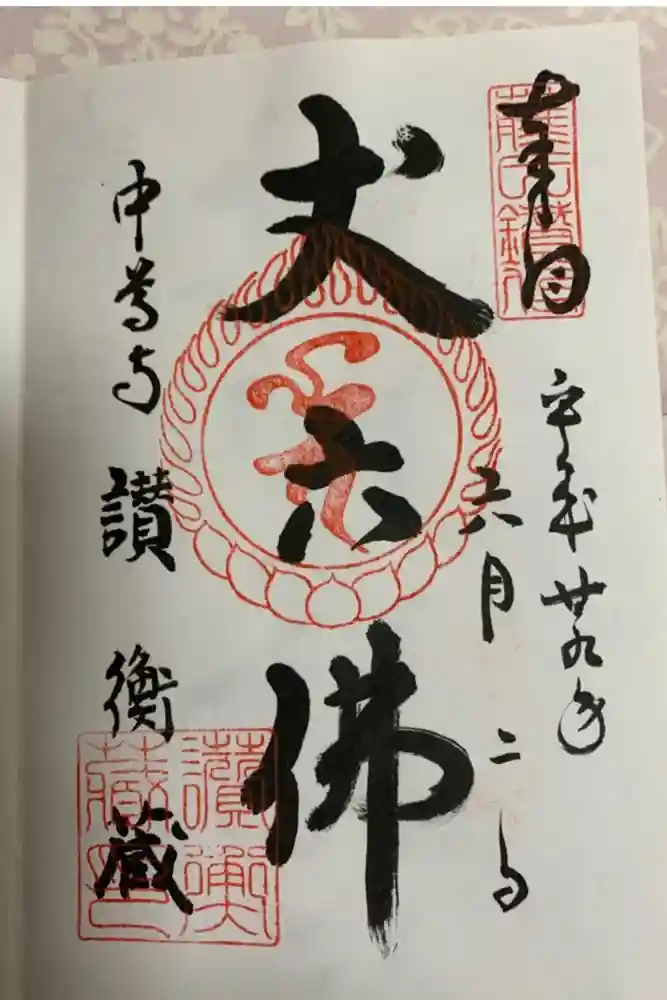 奉拝
平成廿九年
六月二日
丈六佛
中尊寺 讃衡蔵
讃衡
蔵印